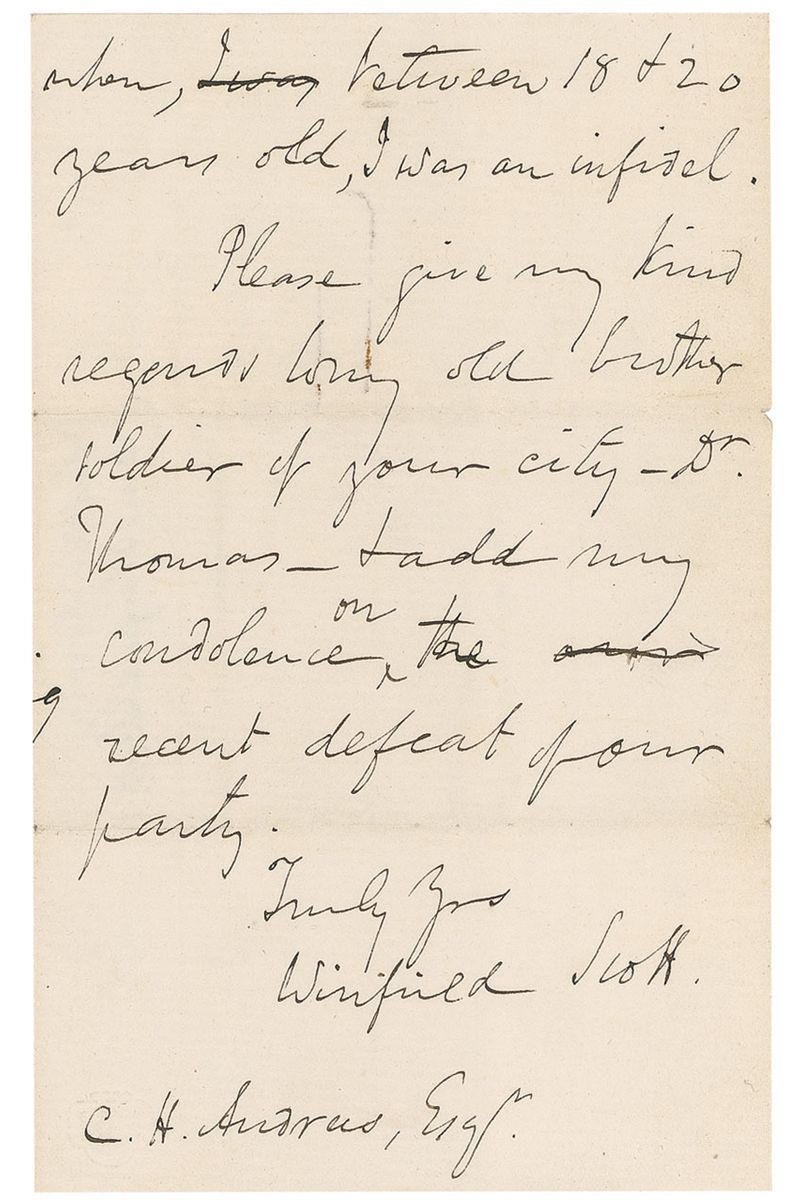 when, I was between 18 & 20
years old, I was an infidel.
Please give my kind
regards to my old brother
soldier of your city – Dr.
Thomas – & add my
on
condolence, the
recent defeat of our
party.
Truly Yrs
Winfield Scott.
C. H. Andrews, Esqr.